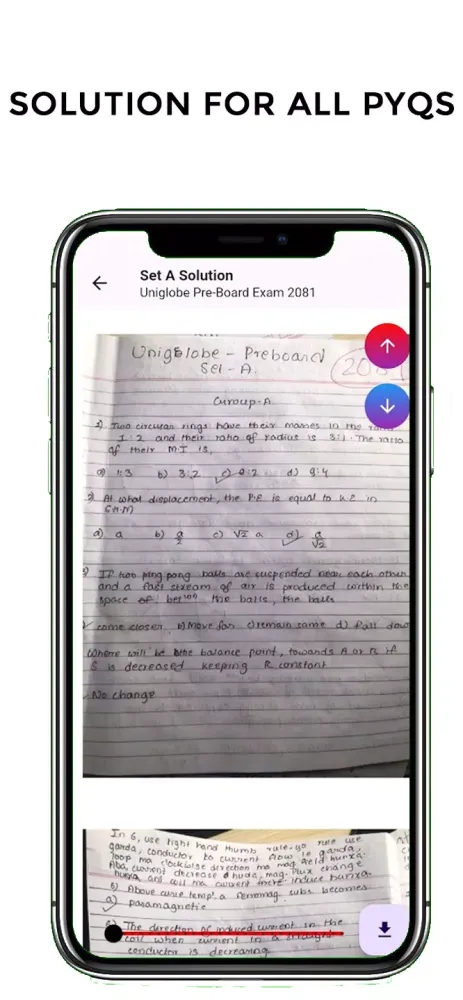 SOLUTION FOR ALL PYQS
Set A Solution
Uniglobe Pre-Board Exam 2081
Uniglobe - Preboard
Set - A.
208
Group-A
1) Two circular rings have their masses in the ratio
1:2 and their ratio of radius is 3:1. The ratio
of their M.I is,
a) 1:3 b) 3:2 c) 9:2 d) 9:4
2) At what displacement, the P.E is equal to K.E in
S.H.M)
a) a b) a/2 c) √2 a d) a/√2
If two ping pong balls are suspended near each other
and a fast stream of air is produced within the
space of between the balls, the balls
come closer. b) Move far c) remain same d) fall down
Where will be the balance point, towards A or B if
S is decreased keeping R constant
No change
In 6, use right hand thumb rule-yo rule use
garda, conductor ko current flow le garda,
loop ma clockwise direction ma mag field hunxa.
Aba, current decrease huda, mag. flux change
hunxa ani coil ma current there induce hunxa.
Above curie temp. a ferromag. subs becomes
a) paramagnetic
The direction of induced current in the
coil when current in a straight
conductor is decreasing